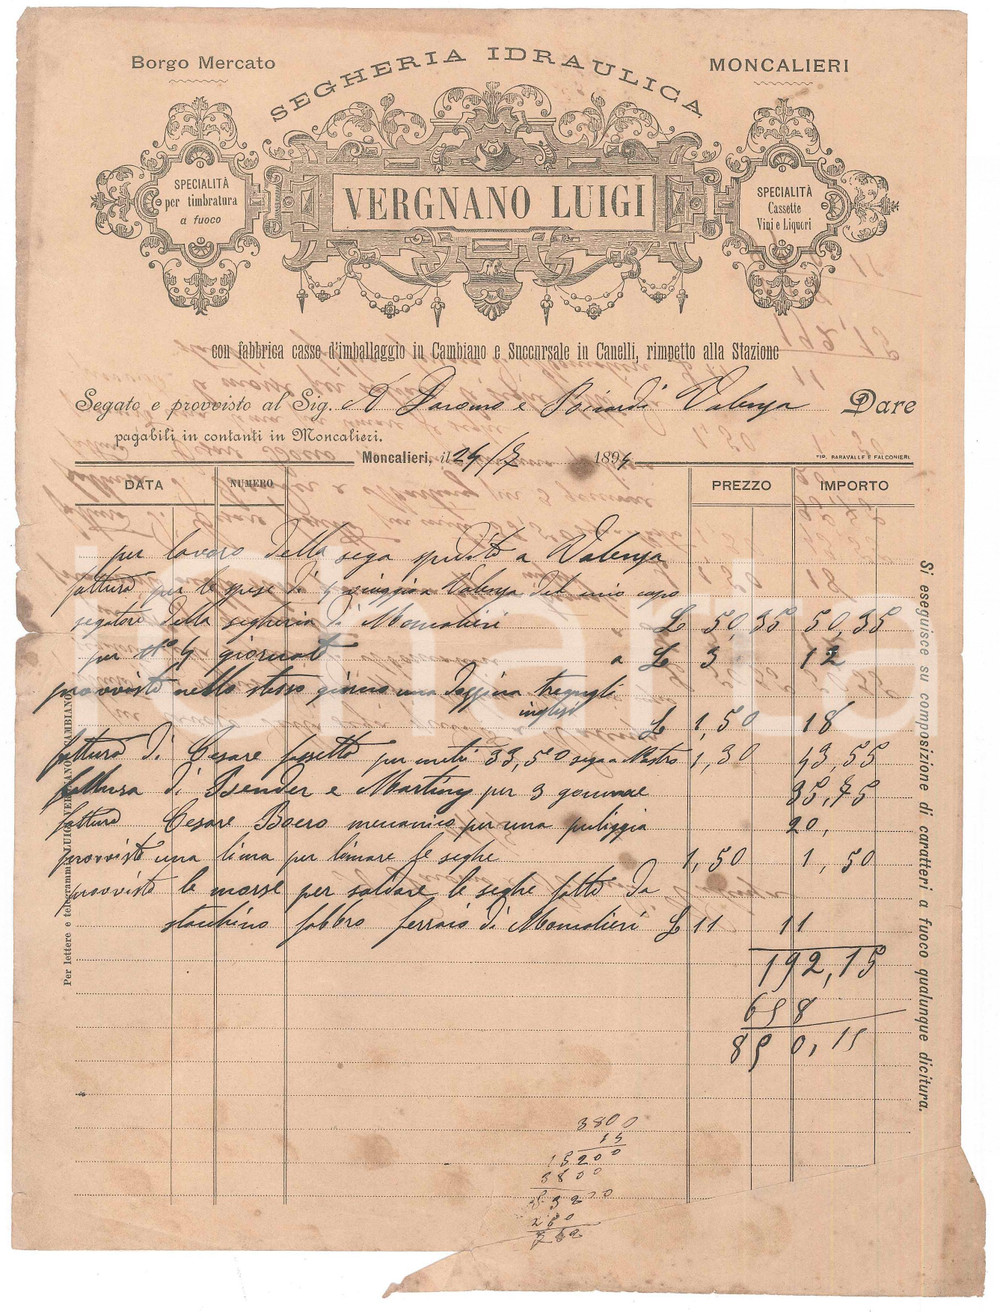 Borgo Mercato
SEGHERIA IDRAULICA
MONCALIERI
SPECIALITÀ
per timbratura
a fuoco
VERGNANO LUIGI
SPECIALITÀ
Cassette
Vini e Liquori
con fabbrica casse d'imballaggio in Cambiano e Succursale in Canelli, rimpetto alla Stazione
Segato e provvisto al Sig. e Valenza Dare
pagabili in contanti in Moncalieri.
Moncalieri, il 24/7 1894
TIP. BARAVALLE E FALCONIERI
DATA NUMERO PREZZO IMPORTO
per lavoro della sega spedito a Valenza
fattura per le spese di Valenza del mio capo
segatore della segheria di Moncalieri £ 50,35 50,35
per N° 4 giornate a £ 3 12
provvisto nello stesso giorno una
inglesi £ 1,50 18
fattura di Cesare per metri 33,50 sega a Nastro 1,30 43,55
fattura di Bender e Martiny per 3 gomme 35,75
fattura Cesare Boero meccanico per una puliggia 20,
provvisto una lima per limare le seghe 1,50 1,50
provvisto le morse per saldare le seghe fatto da
stacchino fabbro ferraio di Moncalieri £ 11 11
192,15
658
850,15
3800
14
15200
3800
Per lettere e telegrammi: LUIGI VERGNANO CAMBIANO
Si eseguisce su composizione di caratteri a fuoco qualunque dicitura.
iCharta